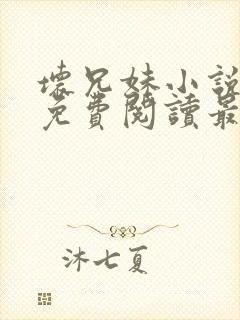 壞兄妹小說
免費閱讀最
沐七夏